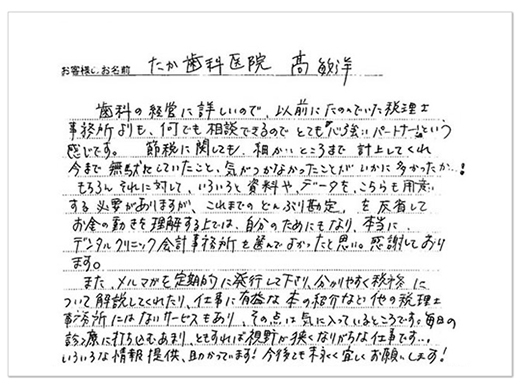 お客様のお名前 たか歯科医院 髙 敏洋
歯科の経営に詳しいので、以前にたのんでいた税理士
事務所よりも、何でも相談できるのでとても“心強いパートナー”という
感じです。 節税に関しても、細かいところまで計上してくれ
今まで無駄にしていたこと、気がつかなかったことがいかに多かったか…!
もちろんそれに対して、いろいろと資料や、データを、こちらも用意
する必要がありますが、これまでのどんぶり勘定、を反省して
お金の動きを理解する上では、自分のためにもなり、本当に
デンタルクリニック会計事務所を選んでよかったと思い。感謝しており
ます。
また、メルマガを定期的に発行して下り、分かりやすく税務に
ついて解説してくれたり、仕事に有益な本の紹介など他の税理士
事務所にはないサービスもあり、その点は気に入っているところです。毎日の
診療に打ち込むあまり、ともすれば視野が狭くなりがちな仕事です…。
いろいろな情報提供、助かっています!今後とも末永く宜しくお願いします!